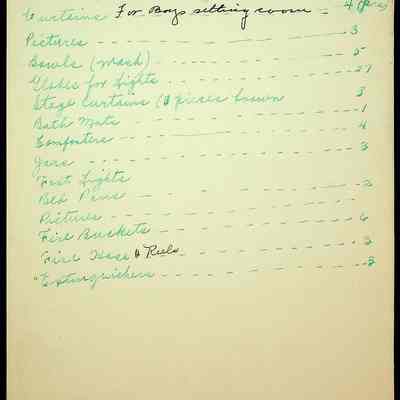 Curtains For Boys sitting room - 4 pairs
Pictures - - - - - - - - - - 3
Bowls (wash) - - - - - - - - 5
Globes for Lights - - - - - - - 27
Stage Curtains ( pieces brown 3
Bath Mats - - - - - - - - - 1
Comforters - - - - - - - - - 4
Jars - - - - - - - - - - 3
Foot Lights
Bed Pans - - - - - - - - - 2
Pictures - - - - - - - - -
Fire Buckets - - - - - - - - 6
Fire Hose & Reels - - - - - - - 2
"Extinguishers - - - - - - - - 3